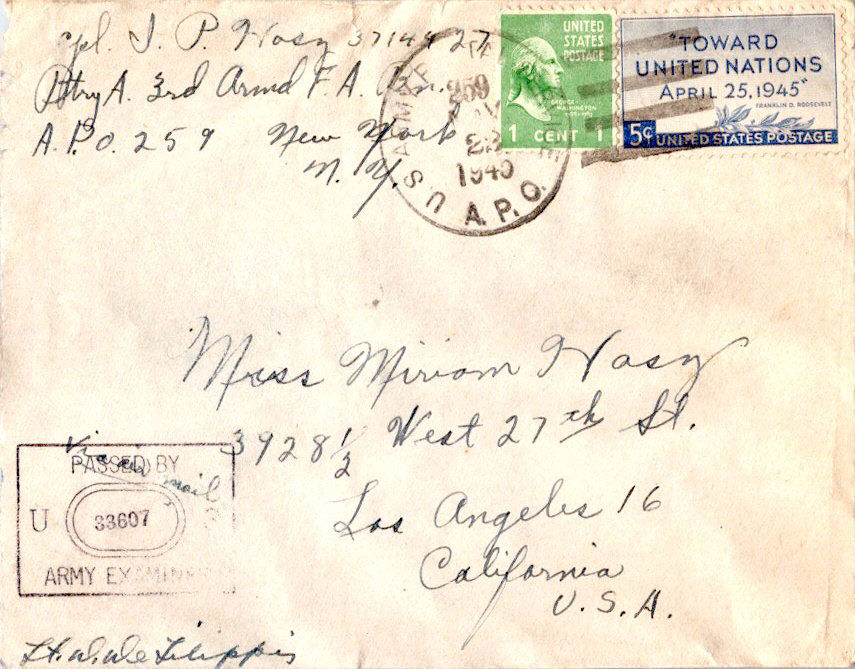 Cpl. J. P. Hosy 37149427
Bttry A. 3rd Armd F. A. Bn.
A.P.O. 259 New York
N. Y.
U.S. ARMY
259
1945
A.P.O.
UNITED
STATES
POSTAGE
GEORGE
WASHINGTON
1 CENT 1
"TOWARD
UNITED NATIONS
APRIL 25, 1945"
FRANKLIN D. ROOSEVELT
5¢ UNITED STATES POSTAGE
Miss Miriam Hosy
3928½ West 27th St.
Los Angeles 16
California
U.S.A.
Via air mail
PASSED BY
U 33607 S
ARMY EXAMINER
Lt. W. De Filippis